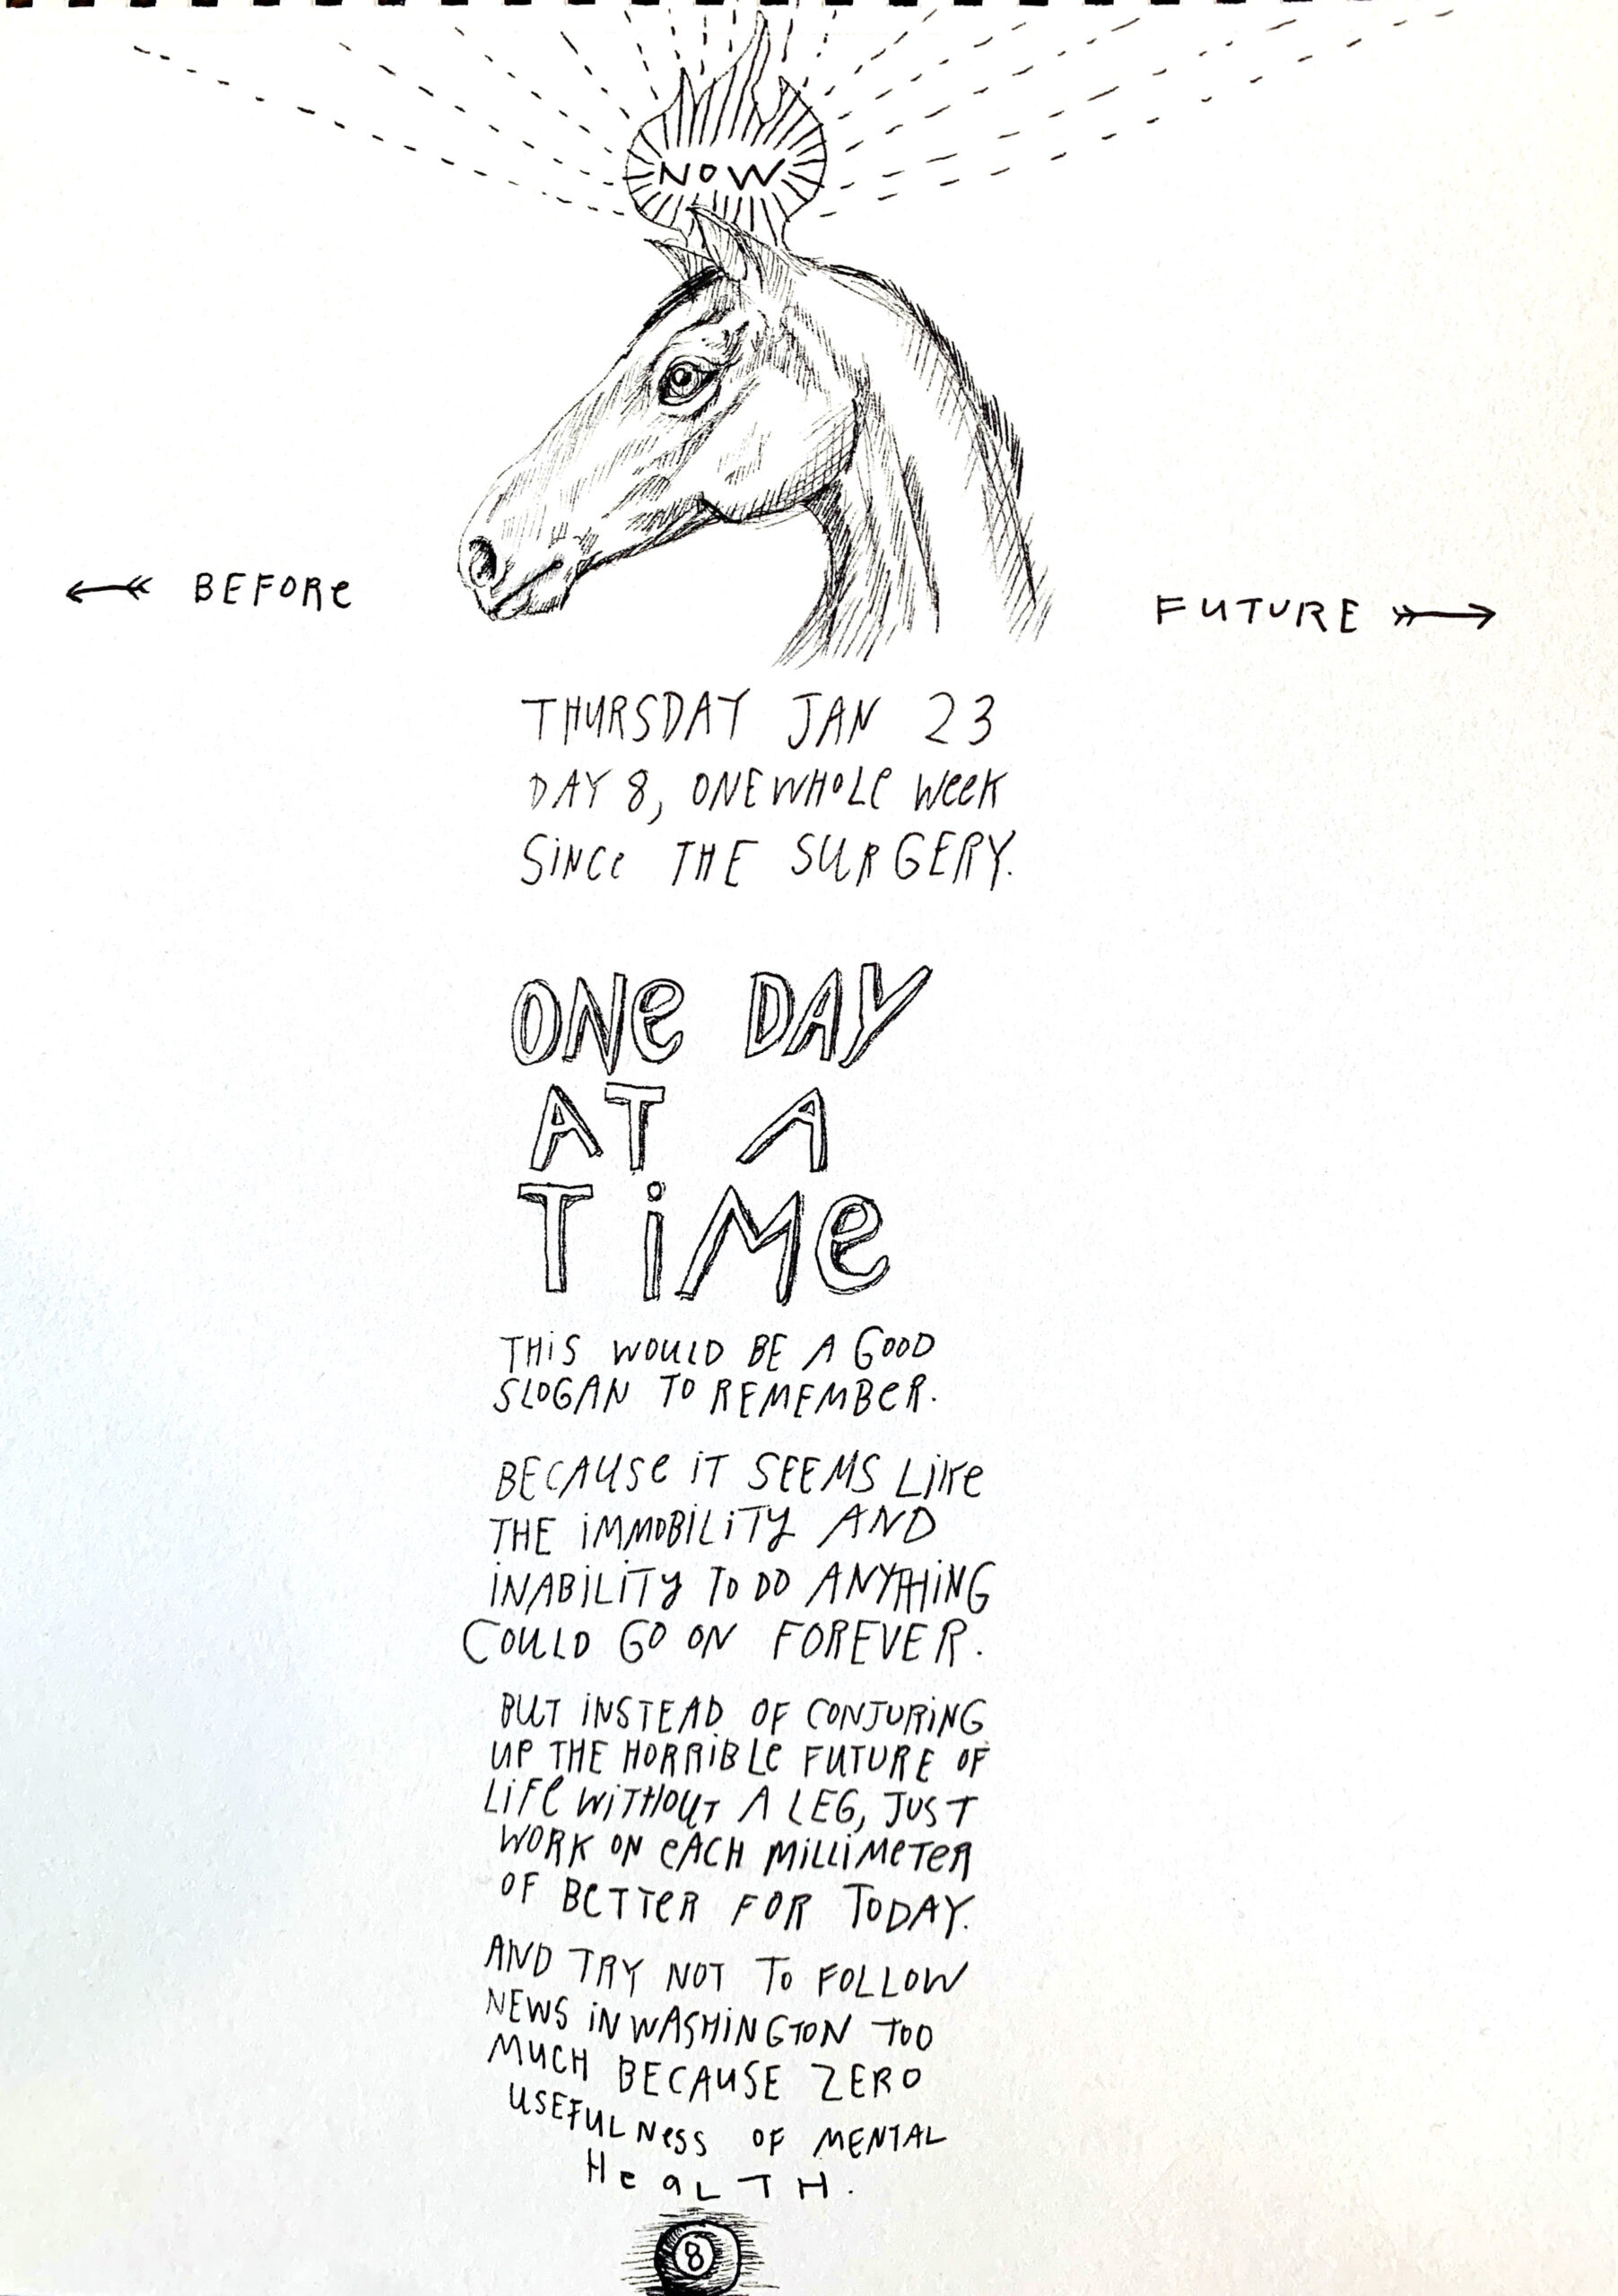 NOW
BEFORe
FUTURE
THURSDAY JAN 23
DAY 8, ONE WHOLe Week
SiNCe THE SURGERY.
ONe DAY
AT A
TiMe
THiS WOULD BE A GOOD
SLOGAN TO REMEMBeR.
BECAUSe iT SEEMS Like
THE iMMOBiLiTy AND
iNABiLiTy To DO ANYTHiNG
COULD GO ON FOREVER.
BUT iNSTEAD OF CONJURiNG
UP THE HORRiBLe FUTURE OF
LiFe WiTHOUT A LEG, JUST
WORK ON eACH MiLLiMeTeR
OF BeTTeR FOR TODAY.
AND TRY NOT To FOLLOW
NEWS iN WASHiNGTON TOO
MUCH BECAUSE ZERO
USEFULNesS OF MENTAL
HeaLTH.
8